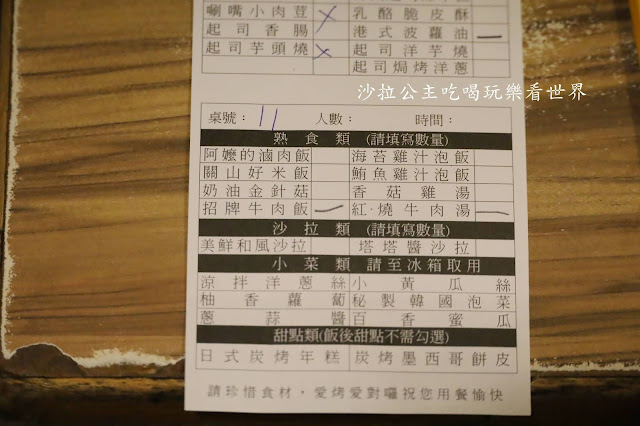 唰嘴小肉荳 乳酪脆皮酥
起司香腸 港式波蘿油
起司芋頭燒 起司洋芋燒
起司焗烤洋蔥
沙拉公主吃喝玩樂看世界
桌號：11 人數： 時間：
熟食類 (請填寫數量)
阿嬤的滷肉飯 海苔雞汁泡飯
關山好米飯 鮪魚雞汁泡飯
奶油金針菇 香菇雞湯
招牌牛肉飯 紅燒牛肉湯
沙拉類 (請填寫數量)
美鮮和風沙拉 塔塔醬沙拉
小菜類 請至冰箱取用
涼拌洋蔥絲 小黃瓜絲
柚香蘿蔔 秘製韓國泡菜
蔥蒜醬 百香蜜瓜
甜點類(飯後甜點不需勾選)
日式炭烤年糕 炭烤墨西哥餅皮
請珍惜食材，愛烤愛對囉祝您用餐愉快